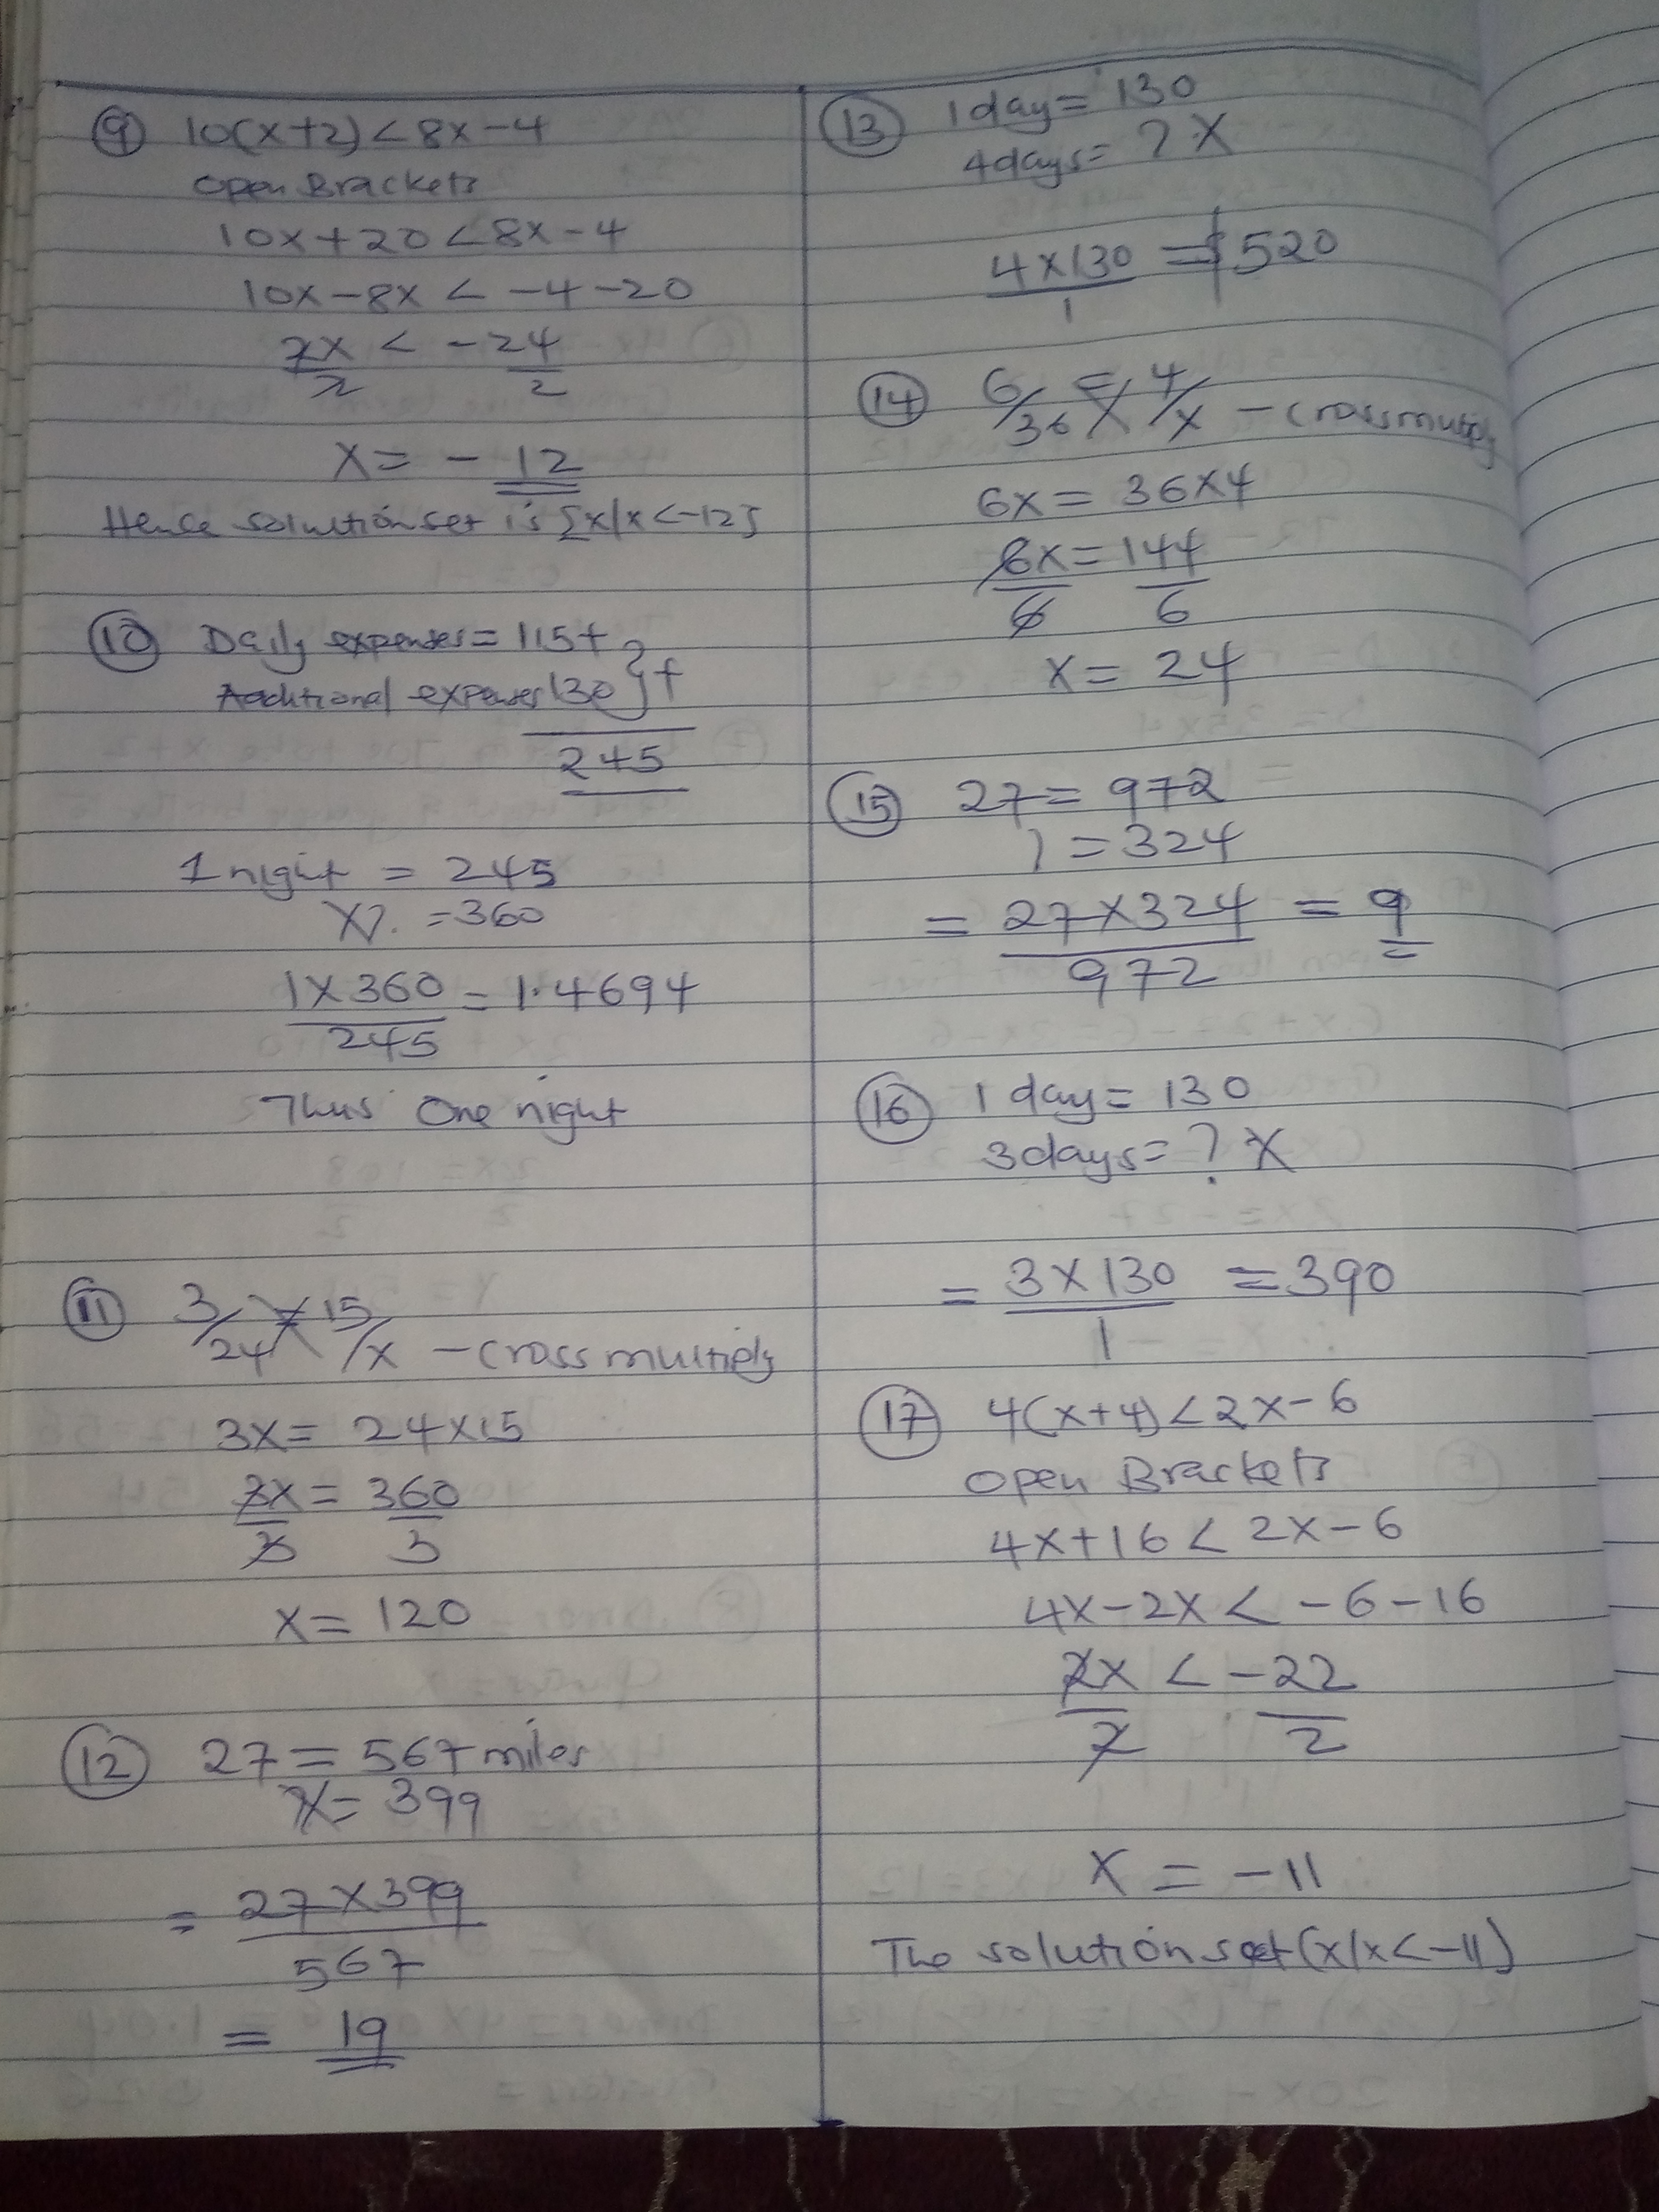 9 10(x+2) < 8x-4
Open Brackets
10x+20 < 8x-4
10x-8x < -4-20
2x/2 < -24/2
x = -12
Hence solution set is {x/x<-12}
10 Daily expenses = 115+
Additional expenses 130 } +
245
1 night = 245
x?. = 360
1x360/245 = 1.4694
Thus One night
11 3/24 = 15/x - cross multiply
3x = 24x15
3x/3 = 360/3
x = 120
12 27 = 567 miles
x = 399
= 27x399/567
= 19
13 1 day = 130
4 days = ? x
4x130/1 = $520
14 6/36 = 4/x - cross multiply
6x = 36x4
6x/6 = 144/6
x = 24
15 27 = 972
? = 324
= 27x324/972 = 9
16 1 day = 130
3 days = ? x
= 3x130/1 = 390
17 4(x+4) < 2x-6
Open Brackets
4x+16 < 2x-6
4x-2x < -6-16
2x/2 < -22/2
x = -11
The solution set (x/x<-11)